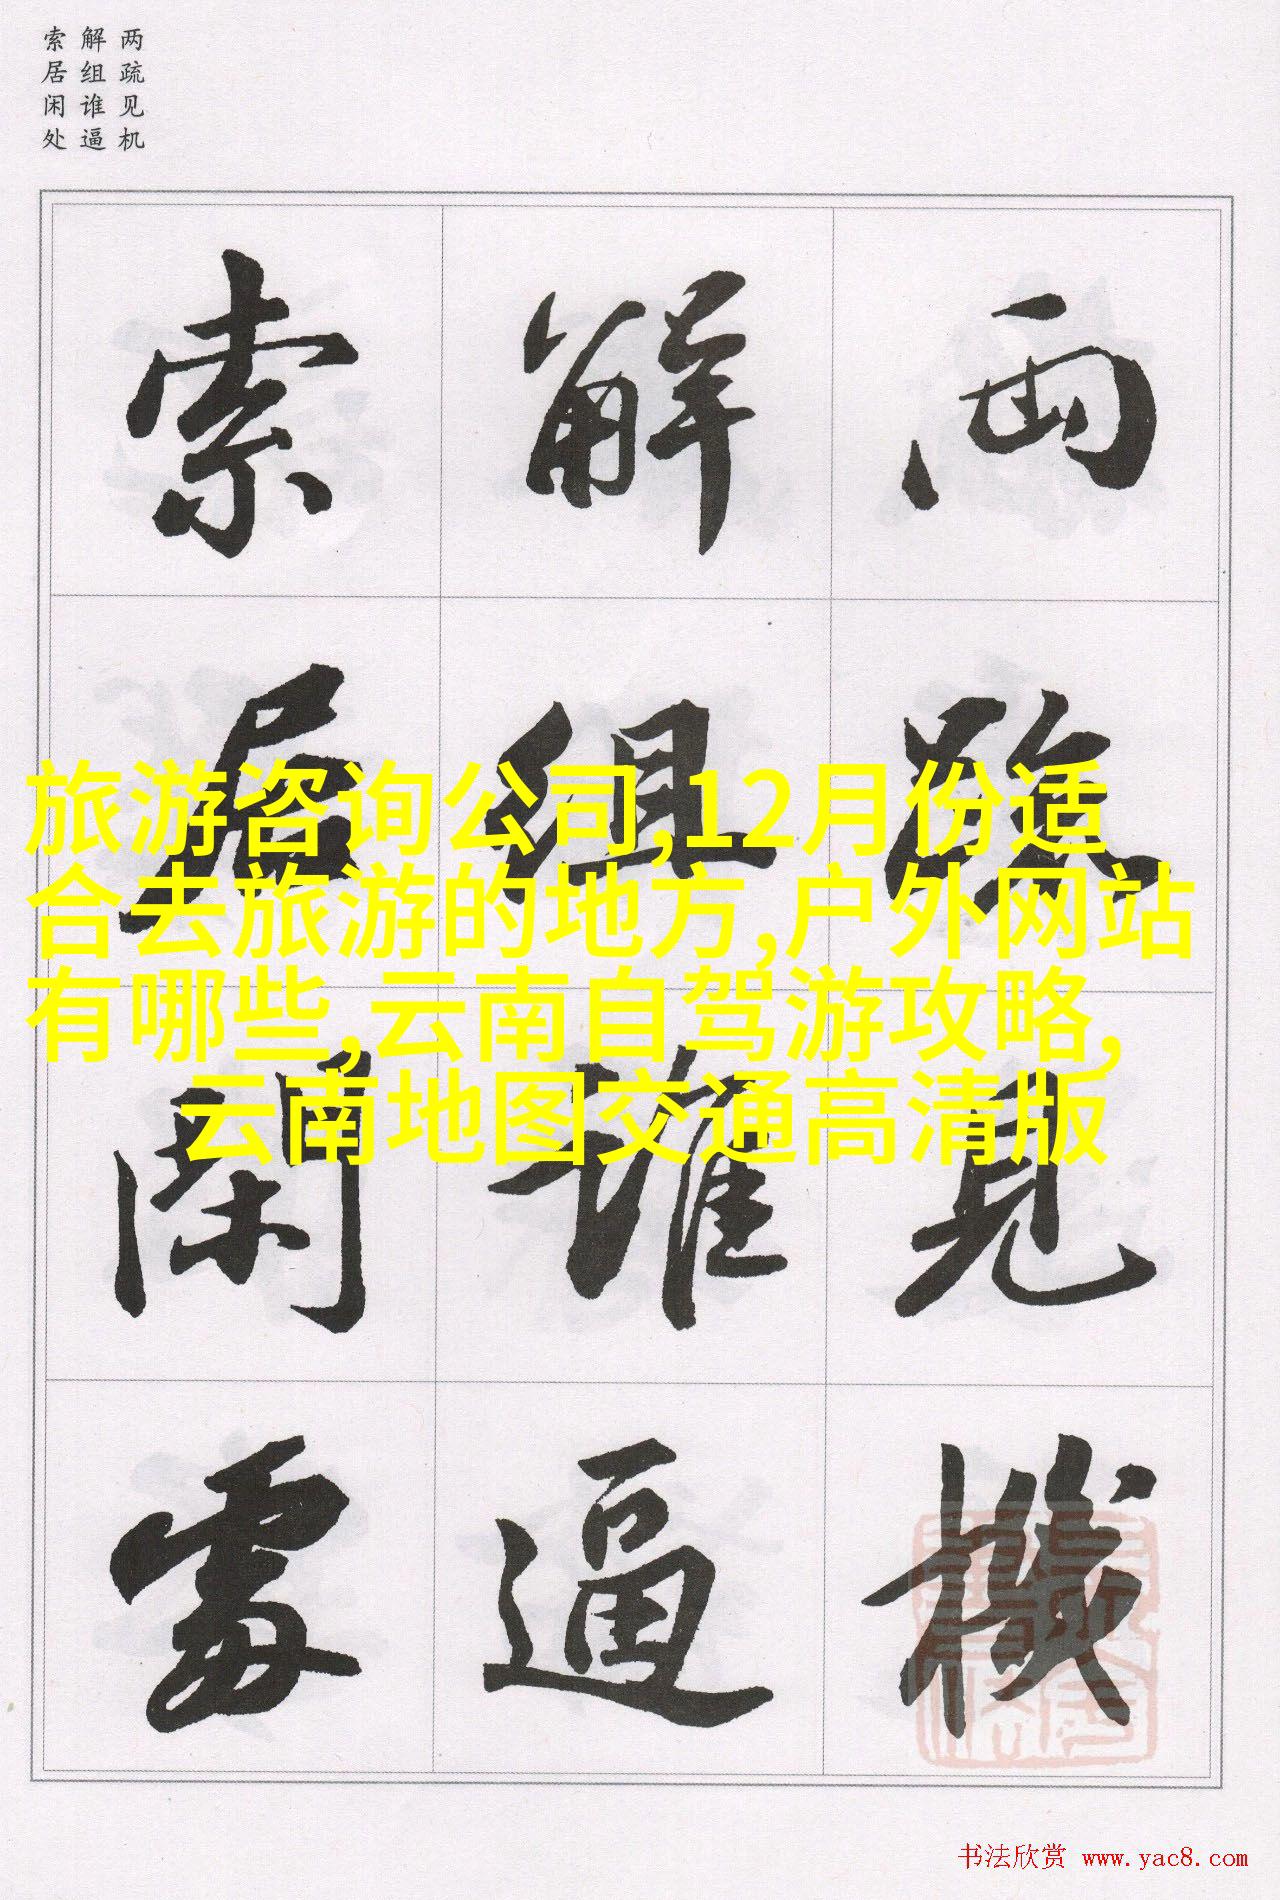 两疏见机
解组谁逼
索居闲处
兩疏見機
解組誰逼
索居閑處
旅游咨询公司,12月份适
合去旅游的地方,户外网站
有哪些,云南自驾游攻略,
云南地图交通高清版
书法欣赏 www.yac8.com